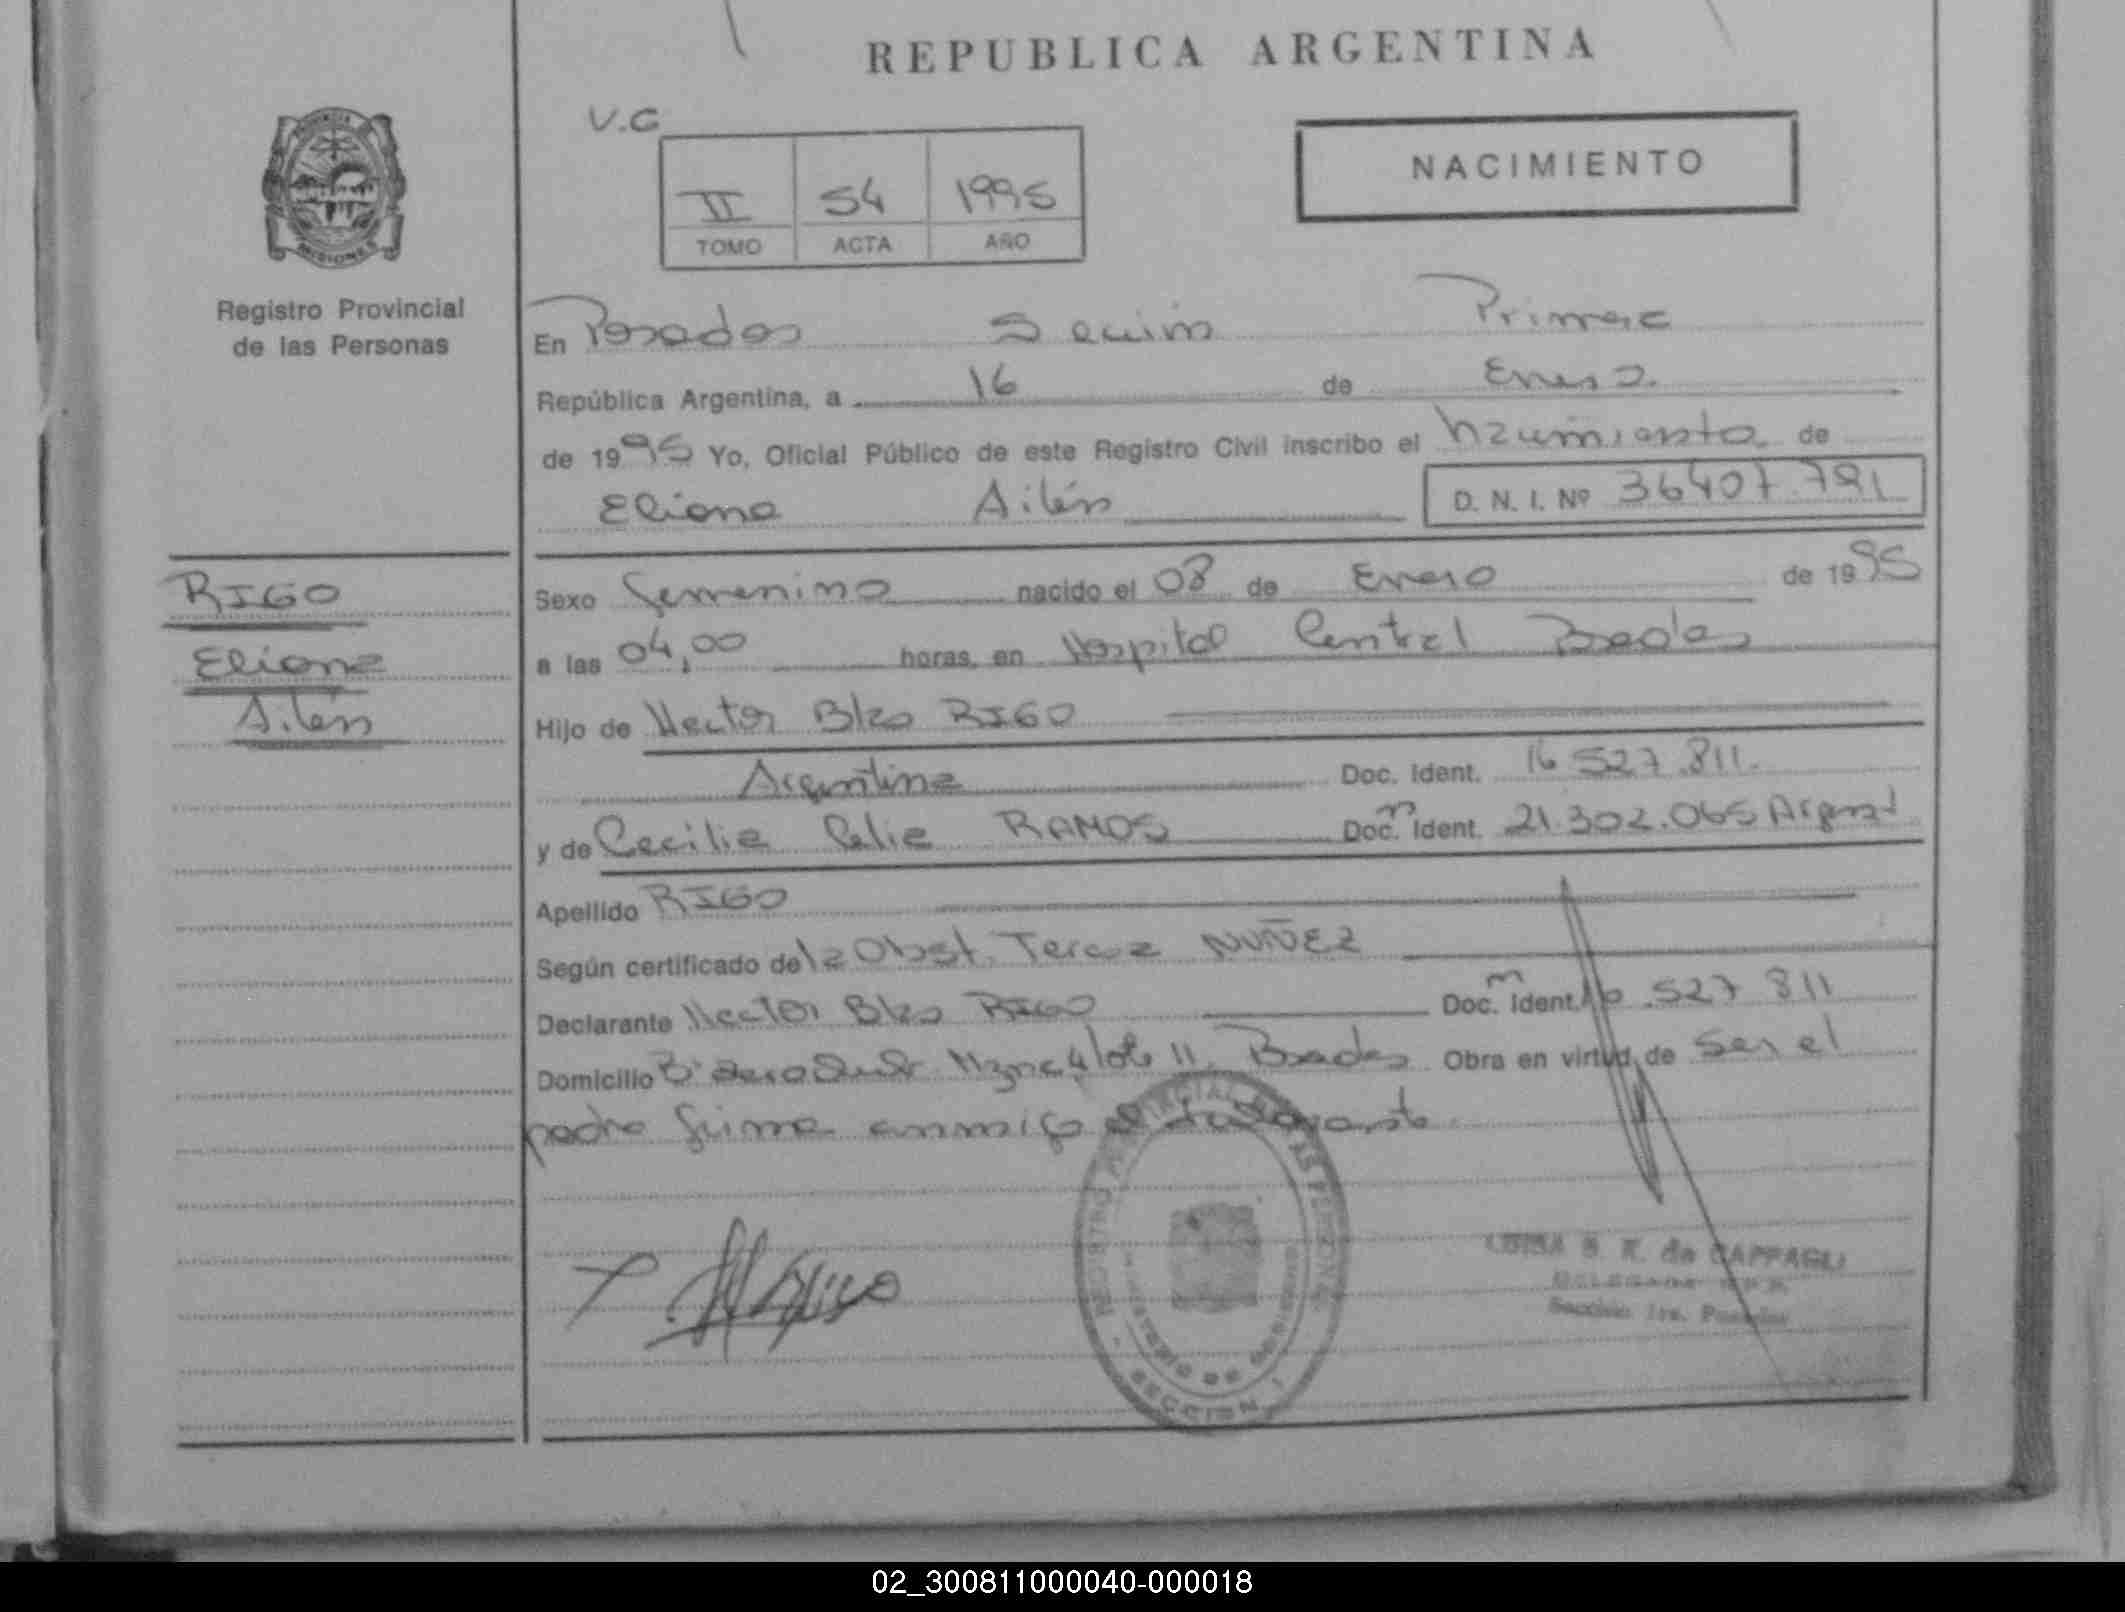 REPUBLICA ARGENTINA
V.C
II 54 1995
TOMO ACTA AÑO
NACIMIENTO
PROVINCIA DE
MISIONES
Registro Provincial
de las Personas
En Posadas Sección Primera
República Argentina, a 16 de Enero
de 1995 Yo, Oficial Público de este Registro Civil inscribo el nacimiento de
Eliana Ailén D. N. I. Nº 36407.781
RIGO
Eliana
Ailén
Sexo femenino nacido el 08 de Enero de 1995
a las 04,00 horas, en Hospital Central Posadas
Hijo de Hector Blas RIGO
Argentina Doc. Ident. 16 527.811.
y de Cecilia Celia RAMOS Doc. Ident. 21.302.065 Argent
Apellido RIGO
Según certificado de la Obst. Teresa NUÑEZ
Declarante Hector Blas RIGO Doc. Ident. 16.527 811
Domicilio Bº Mzna 4 lote 11. Posadas Obra en virtud de ser el
padre firma conmigo el declarante
REGISTRO PROVINCIAL DE LAS PERSONAS
MINISTERIO DE GOBIERNO
SECCION 1
LUISA S. K. de CAPPAGLI
DELEGADA R.P.P.
Sección 1ra. Posadas
02_300811000040-000018